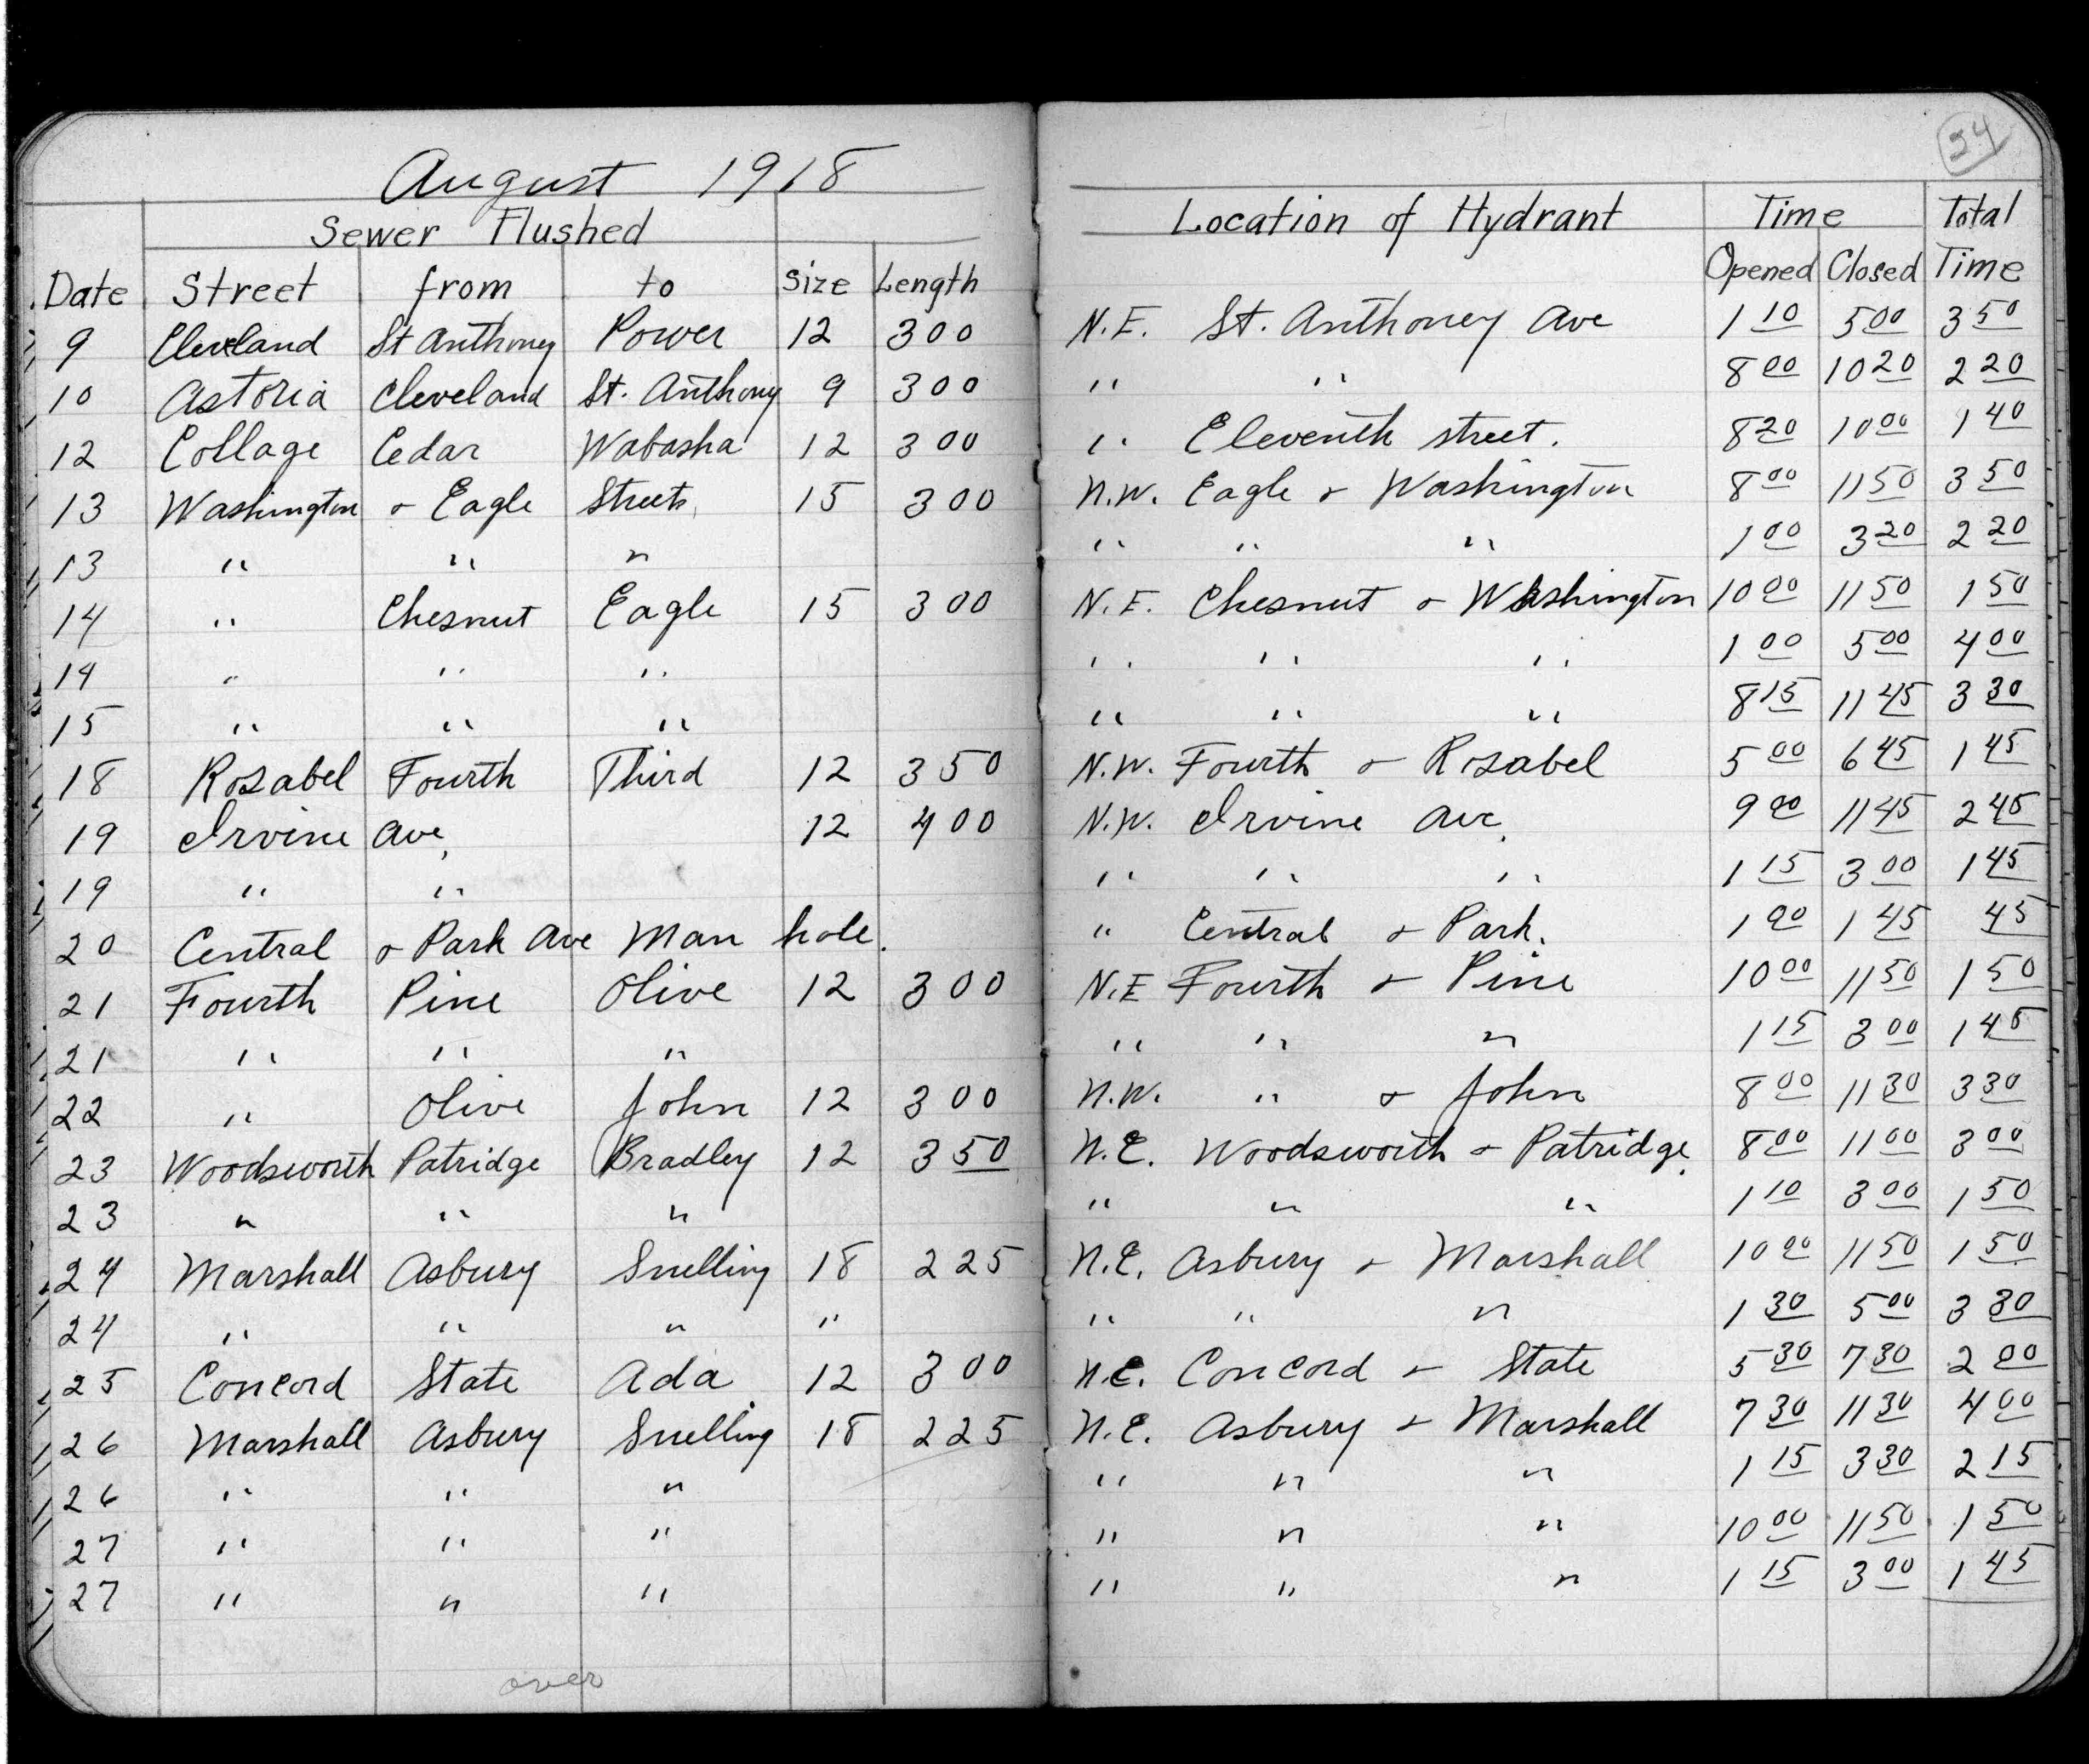 34
August 1918
Sewer Flushed Location of Hydrant Time Total
Date Street from to Size Length Opened Closed Time
9 Cleveland St Anthony Power 12 300 N.E. St. Anthoney Ave 1 10 5 00 3 50
10 Astoria Cleveland St. Anthony 9 300 " " 8 00 10 20 2 20
12 Collage Cedar Wabasha 12 300 " Eleventh street. 8 20 10 00 1 40
13 Washington & Eagle Streets 15 300 N.W. Eagle & Washington 8 00 11 50 3 50
13 " " " " " " 1 00 3 20 2 20
14 " Chesnut Eagle 15 300 N.E. Chesnut & Washington 10 00 11 50 1 50
14 " " " " " " 1 00 5 00 4 00
15 " " " " " " 8 15 11 45 3 30
18 Rosabel Fourth Third 12 350 N.W. Fourth & Rosabel 5 00 6 45 1 45
19 Irvine Ave, 12 400 N.W. Irvine Ave. 9 00 11 45 2 45
19 " " " " " 1 15 3 00 1 45
20 Central & Park Ave Man hole. " Central & Park. 1 00 1 45 45
21 Fourth Pine Olive 12 300 N.E Fourth & Pine 10 00 11 50 1 50
21 " " " " " " 1 15 3 00 1 45
22 " Olive John 12 300 N.W. " & John 8 00 11 30 3 30
23 Woodsworth Patridge Bradley 12 350 N.E. Woodsworth & Patridge. 8 00 11 00 3 00
23 " " " " " " 1 10 3 00 1 50
24 Marshall Asbury Snelling 18 225 N.E. Asbury & Marshall 10 00 11 50 1 50
24 " " " " " " " 1 30 5 00 3 30
25 Concord State Ada 12 300 N.E. Concord & State 5 30 7 30 2 00
26 Marshall Asbury Snelling 18 225 N.E. Asbury & Marshall 7 30 11 30 4 00
26 " " " " " " 1 15 3 30 2 15
27 " " " " " " 10 00 11 50 1 50
27 " " " " " " 1 15 3 00 1 45
over